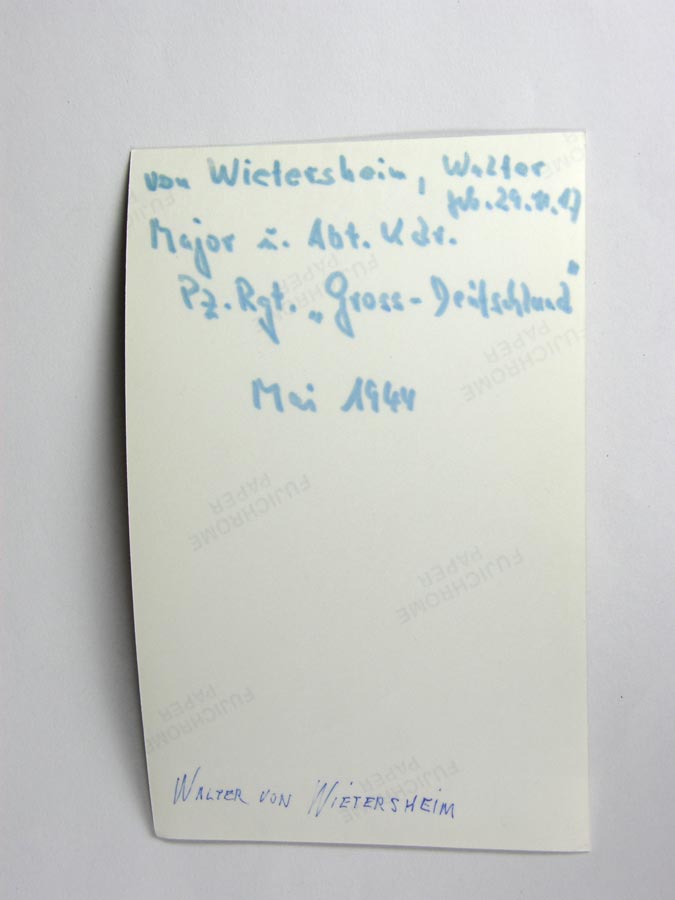 von Wietersheim, Walter
geb. 29.11.17
Major u. Abt. Kdr.
Pz. Rgt. „Gross-Deutschland"
Mai 1944
FUJICHROME
PAPER
FUJICHROME
PAPER
FUJICHROME
PAPER
FUJICHROME
PAPER
FUJICHROME
PAPER
WALTER VON WIETERSHEIM